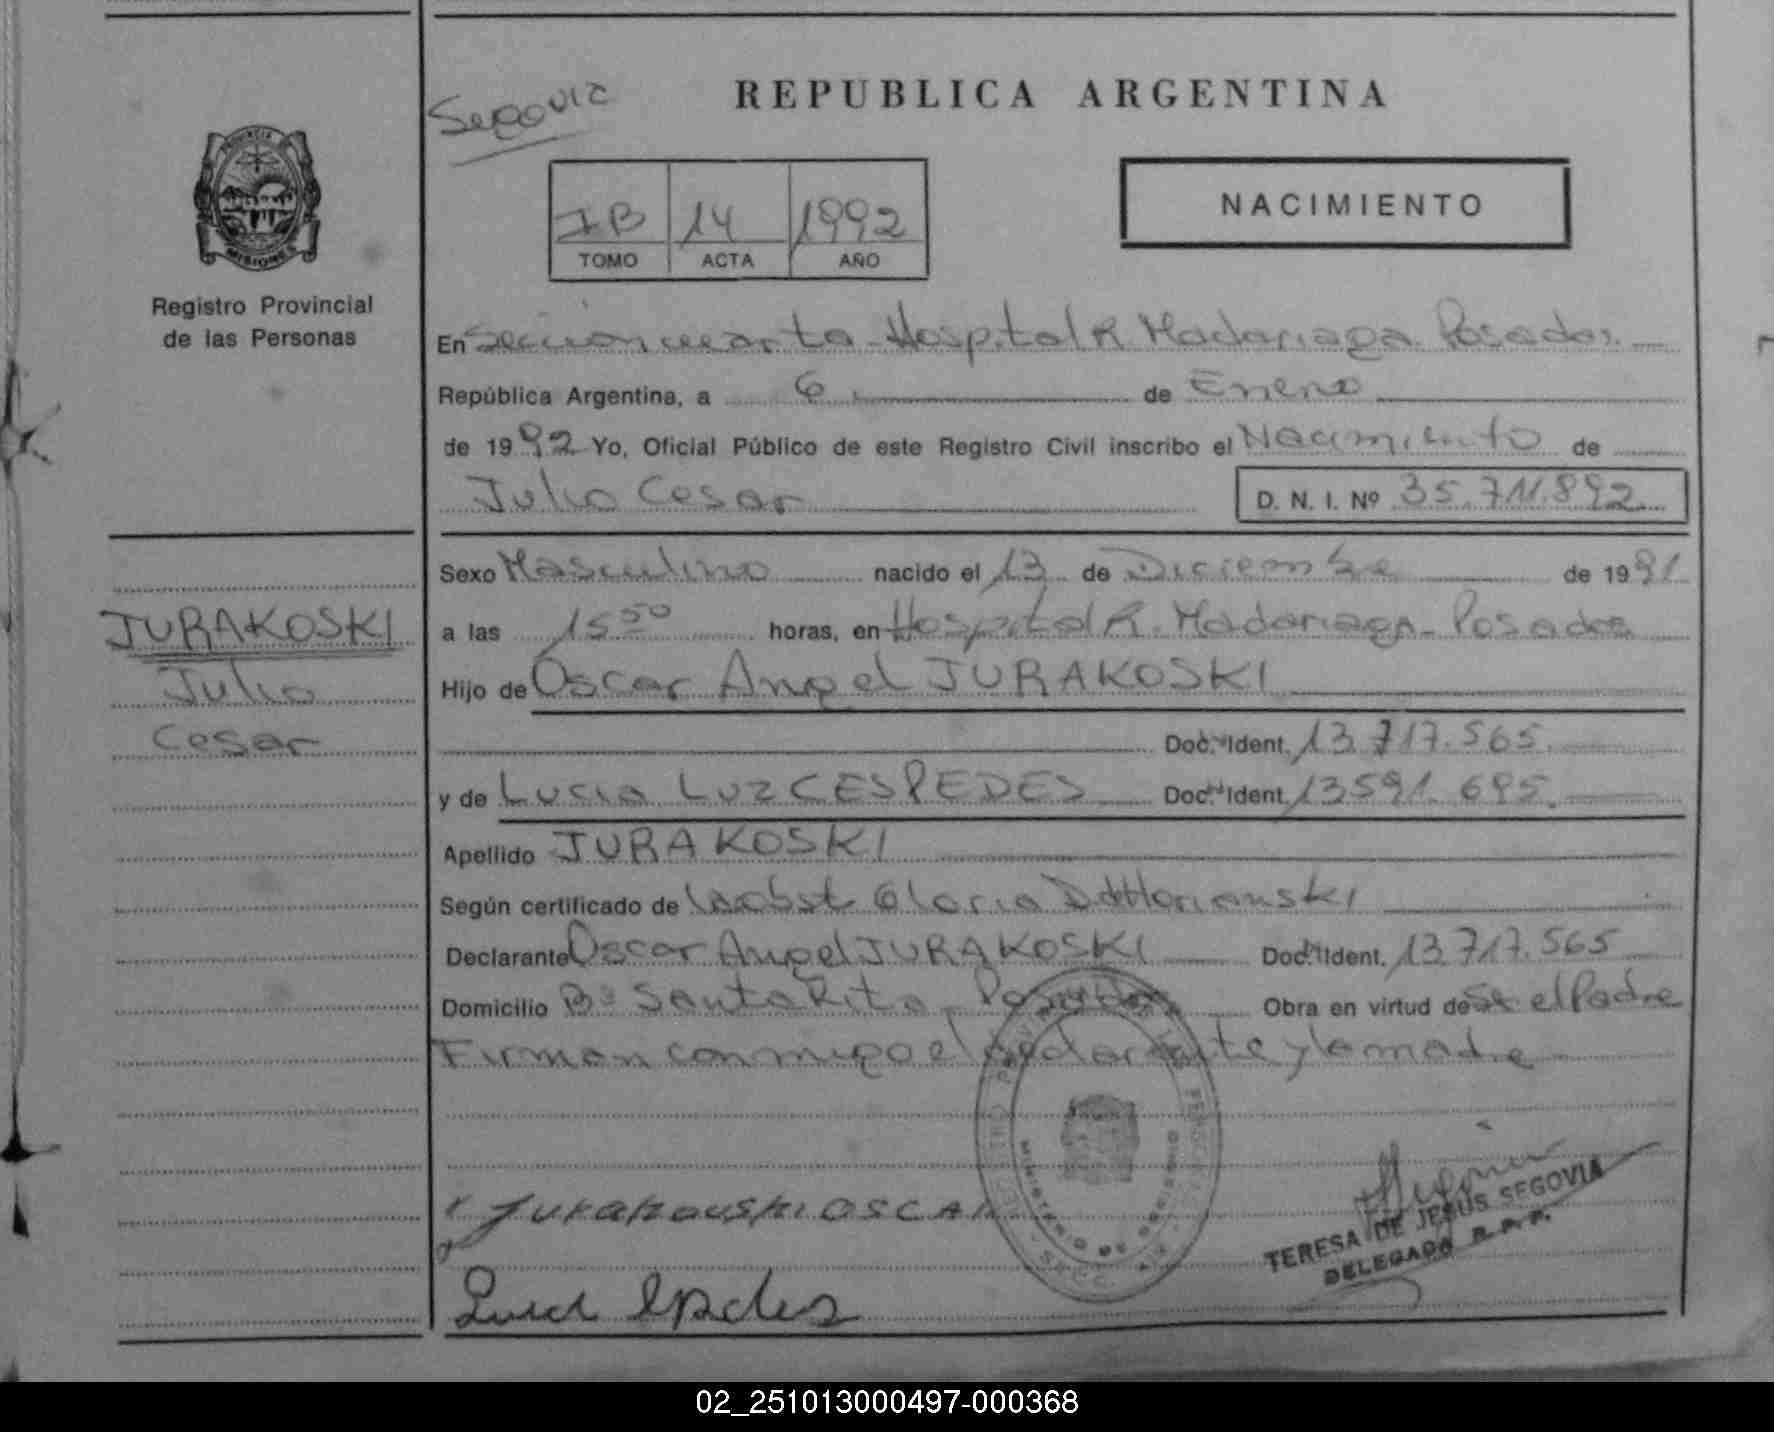 REPUBLICA ARGENTINA
Segovia
PROVINCIA
MISIONES
Registro Provincial
de las Personas
IB 14 1992
TOMO ACTA AÑO
NACIMIENTO
En Seccion cuarta - Hospital R. Madariaga. Posadas.
República Argentina, a 6 de Enero
de 1992 Yo, Oficial Público de este Registro Civil inscribo el Nacimiento de
Julio Cesar D. N. I. Nº 35.711.892
Sexo Masculino nacido el 13 de Diciembre de 1991
JURAKOSKI
Julio
Cesar
a las 15 50 horas, en Hospital R. Madariaga - Posadas
Hijo de Oscar Angel JURAKOSKI
Doc. Ident. 13.717.565.
y de Lucia Luz CESPEDES Doc. Ident. 13591.695.
Apellido JURAKOSKI
Según certificado de Gloria
Declarante Oscar Angel JURAKOSKI Doc. Ident. 13.717.565
Domicilio Bº Santa Rita - Posadas Obra en virtud de Se el Padre
Firman conmigo el declarante y la madre
Jurakouski OSCAR
TERESA DE JESUS SEGOVIA
DELEGADA R. P. P.
02_251013000497-000368